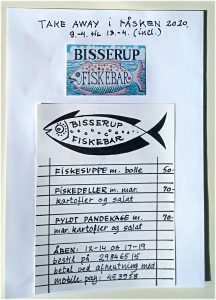 TAKE AWAY i PÅSKEN 2020.
9.-4. til 13.-4. (incl.)
BISSERUP
FISKEBAR
BISSERUP
FISKEBAR
FISKESUPPE m. bolle 50.-
FISKEDELLER m. mar. 70.-
kartofler og salat
FYLDT PANDEKAGE m. 70.-
mar. kartofler og salat
ÅBEN: 12-14 og 17-19
bestil på 29846515
betal ved afhentning med
mobile pay: 453958